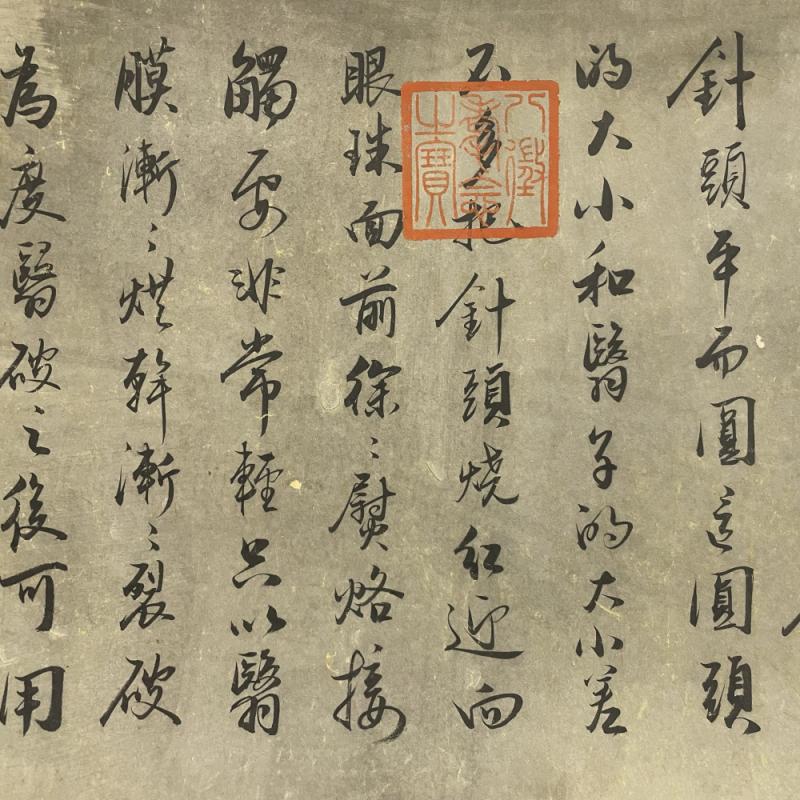 針頭平而圓這圓頭
的大小和翳子的大小差
不多把針頭燒紅近向
眼珠面前徐〻熨烙接
觸要非常輕只以翳
膜漸〻烘幹漸〻裂破
為度翳破之後可用
八徵耄念之寶